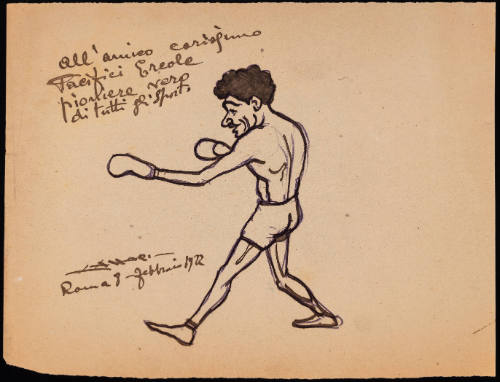 all'amico carissimo
Pacifici Ercole
pioniere vero
di tutti gli Sports
Roma 8 febbraio